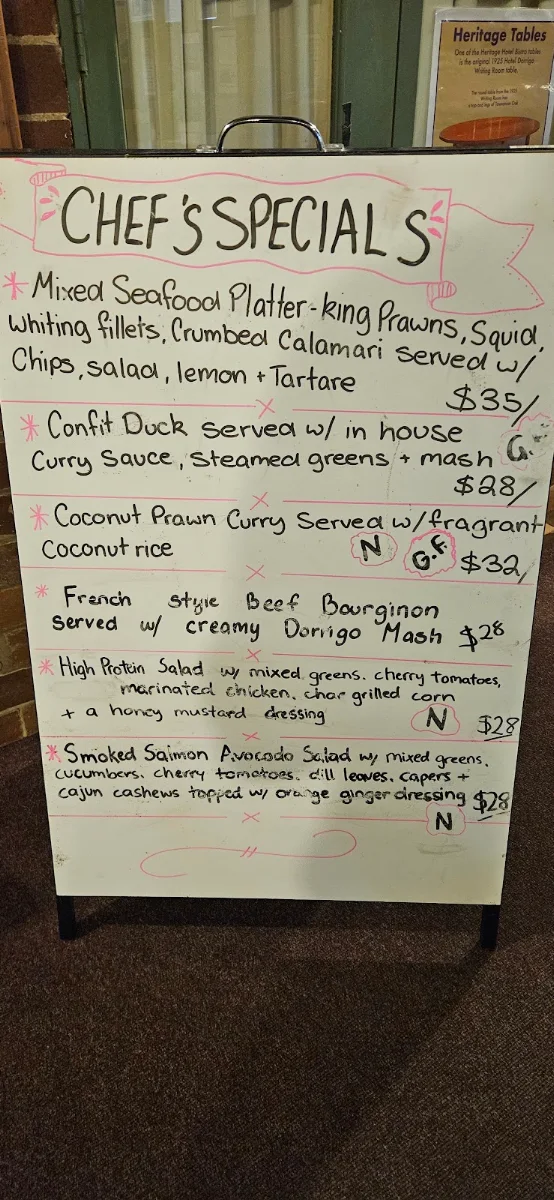 Heritage Tables
One of the Heritage Hotel Bistro tables
is the original 1925 Hotel Dorrigo
Writing Room table.
CHEF'S SPECIALS
* Mixed Seafood Platter - king Prawns, Squid,
whiting fillets, Crumbed Calamari served w/
Chips, salad, lemon + Tartare
$35/
* Confit Duck served w/ in house
G.
Curry Sauce, steamed greens + mash
$28/
* Coconut Prawn Curry Served w/ fragrant
Coconut rice
N G.F. $32/
* French style Beef Bourginon
served w/ creamy Dorrigo Mash $28
* High Protein Salad w/ mixed greens. cherry tomatoes,
marinated chicken. char grilled corn
+ a honey mustard dressing
N $28
* Smoked Salmon Avocado Salad w/ mixed greens.
cucumbers. cherry tomatoes. dill leaves. capers +
cajun cashews topped w/ orange ginger dressing $28
N